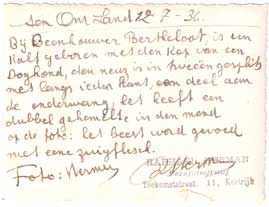 Ons Land 22-7-36
Bij Beenhouwer Bertheloot, is een
Kalf geboren met den Kop van een
Doghond, den neus is in tweeën gesplist
met langs ieder kant, een deel aan
de onderwang; het heeft een
dubbel gehemelte in den mond
op de foto: het beest word gevoed
met eene zuigflesch.
Foto: Hermer
Toekomststraat, 11, Kortrijk